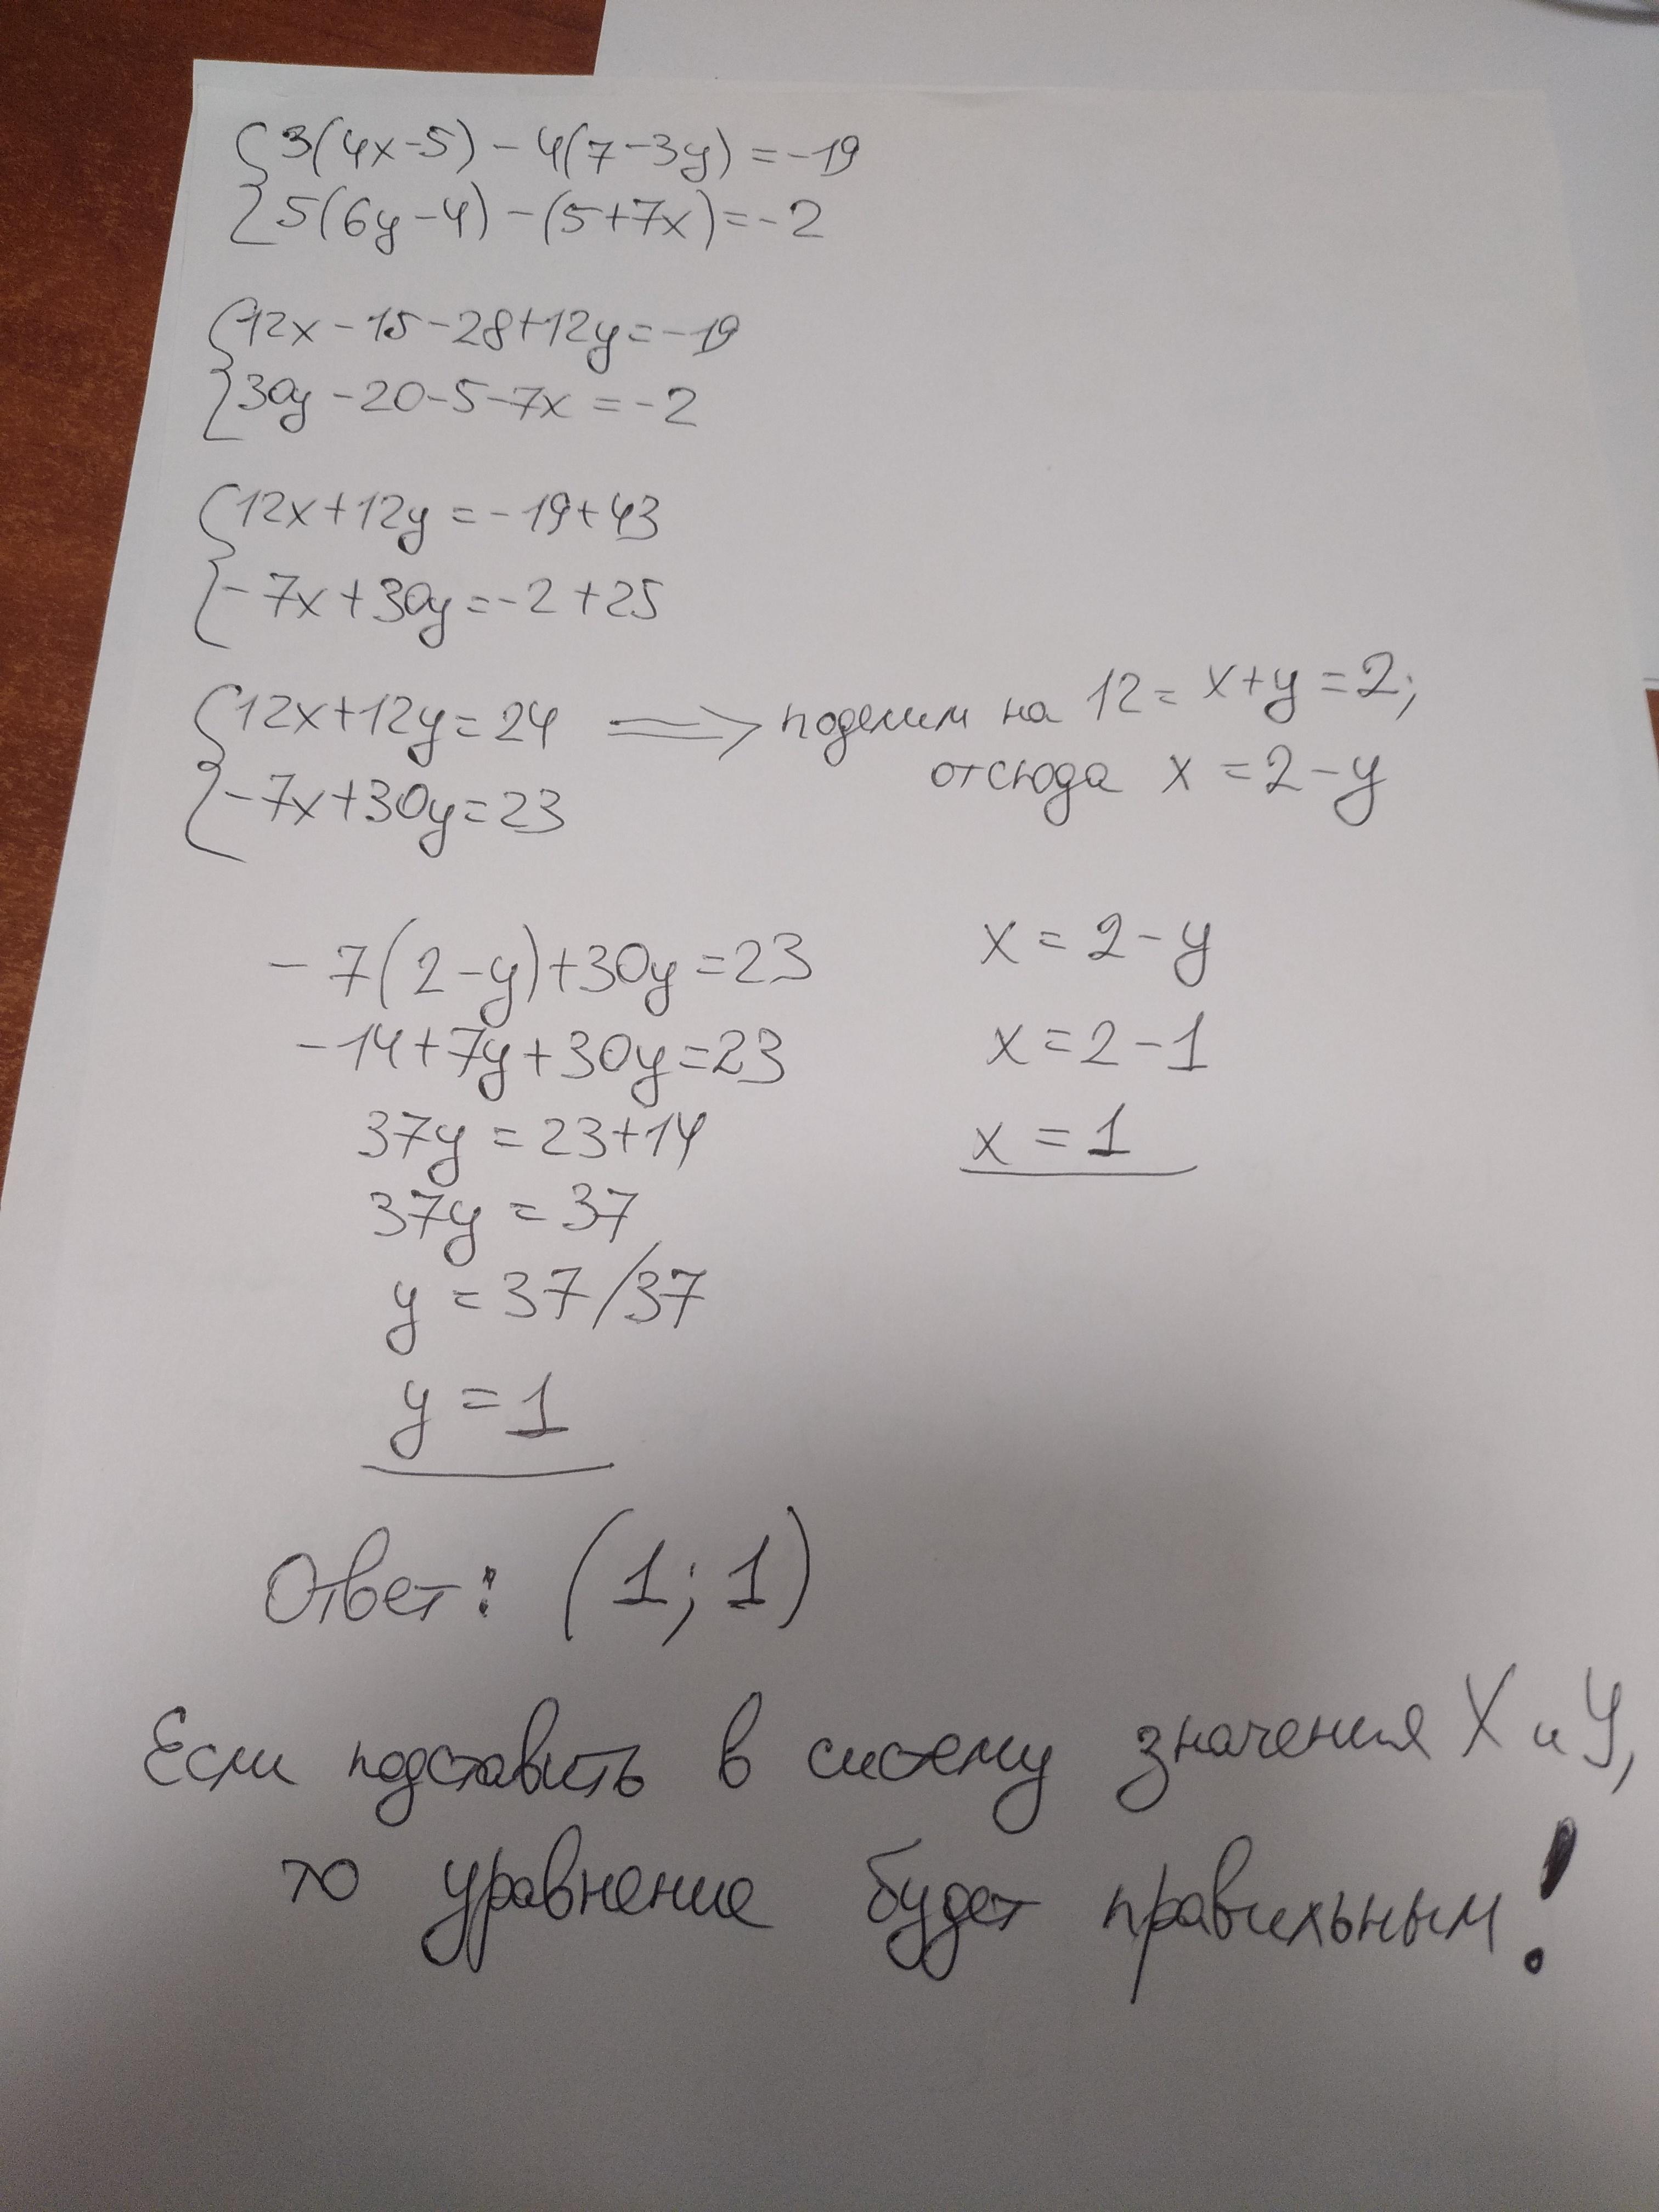 {3(4x-5)-4(7-3y)=-19
5(6y-4)-(5+7x)=-2
{12x-15-28+12y=-19
30y-20-5-7x=-2
{12x+12y=-19+43
-7x+30y=-2+25
{12x+12y=24 ⟹ поделим на 12= x+y=2;
отсюда x=2-y
-7x+30y=23
-7(2-y)+30y=23
-14+7y+30y=23
37y=23+14
37y=37
y=37/37
y=1
x=2-y
x=2-1
x=1
Ответ: (1;1)
Если подставить в систему значения X и У,
то уравнение будет правильным!